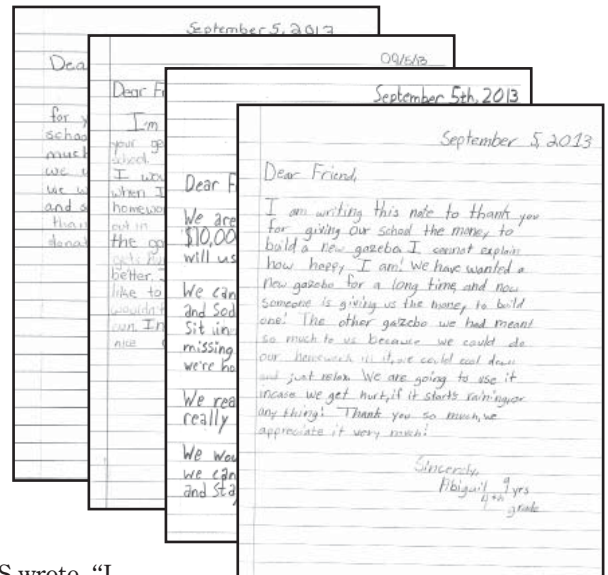 September 5, 2013
Dea
for y
schoo
much
we w
we w
and s
than
dona
09/5/13
Dear Fr
I'm
your ge
school.
I wou
when I
homewor
out in
the go
gets
better. I
like to
wouldn't
own. I
nice
September 5th, 2013
Dear F
We are
$10,00
will us
We can
and Sod
Sit in
missing
we're ho
We rea
really
We wou
we can
and sta
September 5, 2013
Dear Friend,
I am writing this note to thank you
for giving our school the money to
build a new gazebo. I cannot explain
how happy I am! We have wanted a
new gazebo for a long time, and now
someone is giving us the money to build
one! The other gazebo we had meant
so much to us because we could do
our homework in it, we could cool down
and just relax. We are going to use it
incase we get hurt, if it starts raining, or
any thing! Thank you so much, we
appreciate it very much!
Sincerely,
Abigail 9 yrs
4th grade
S wrote, “I